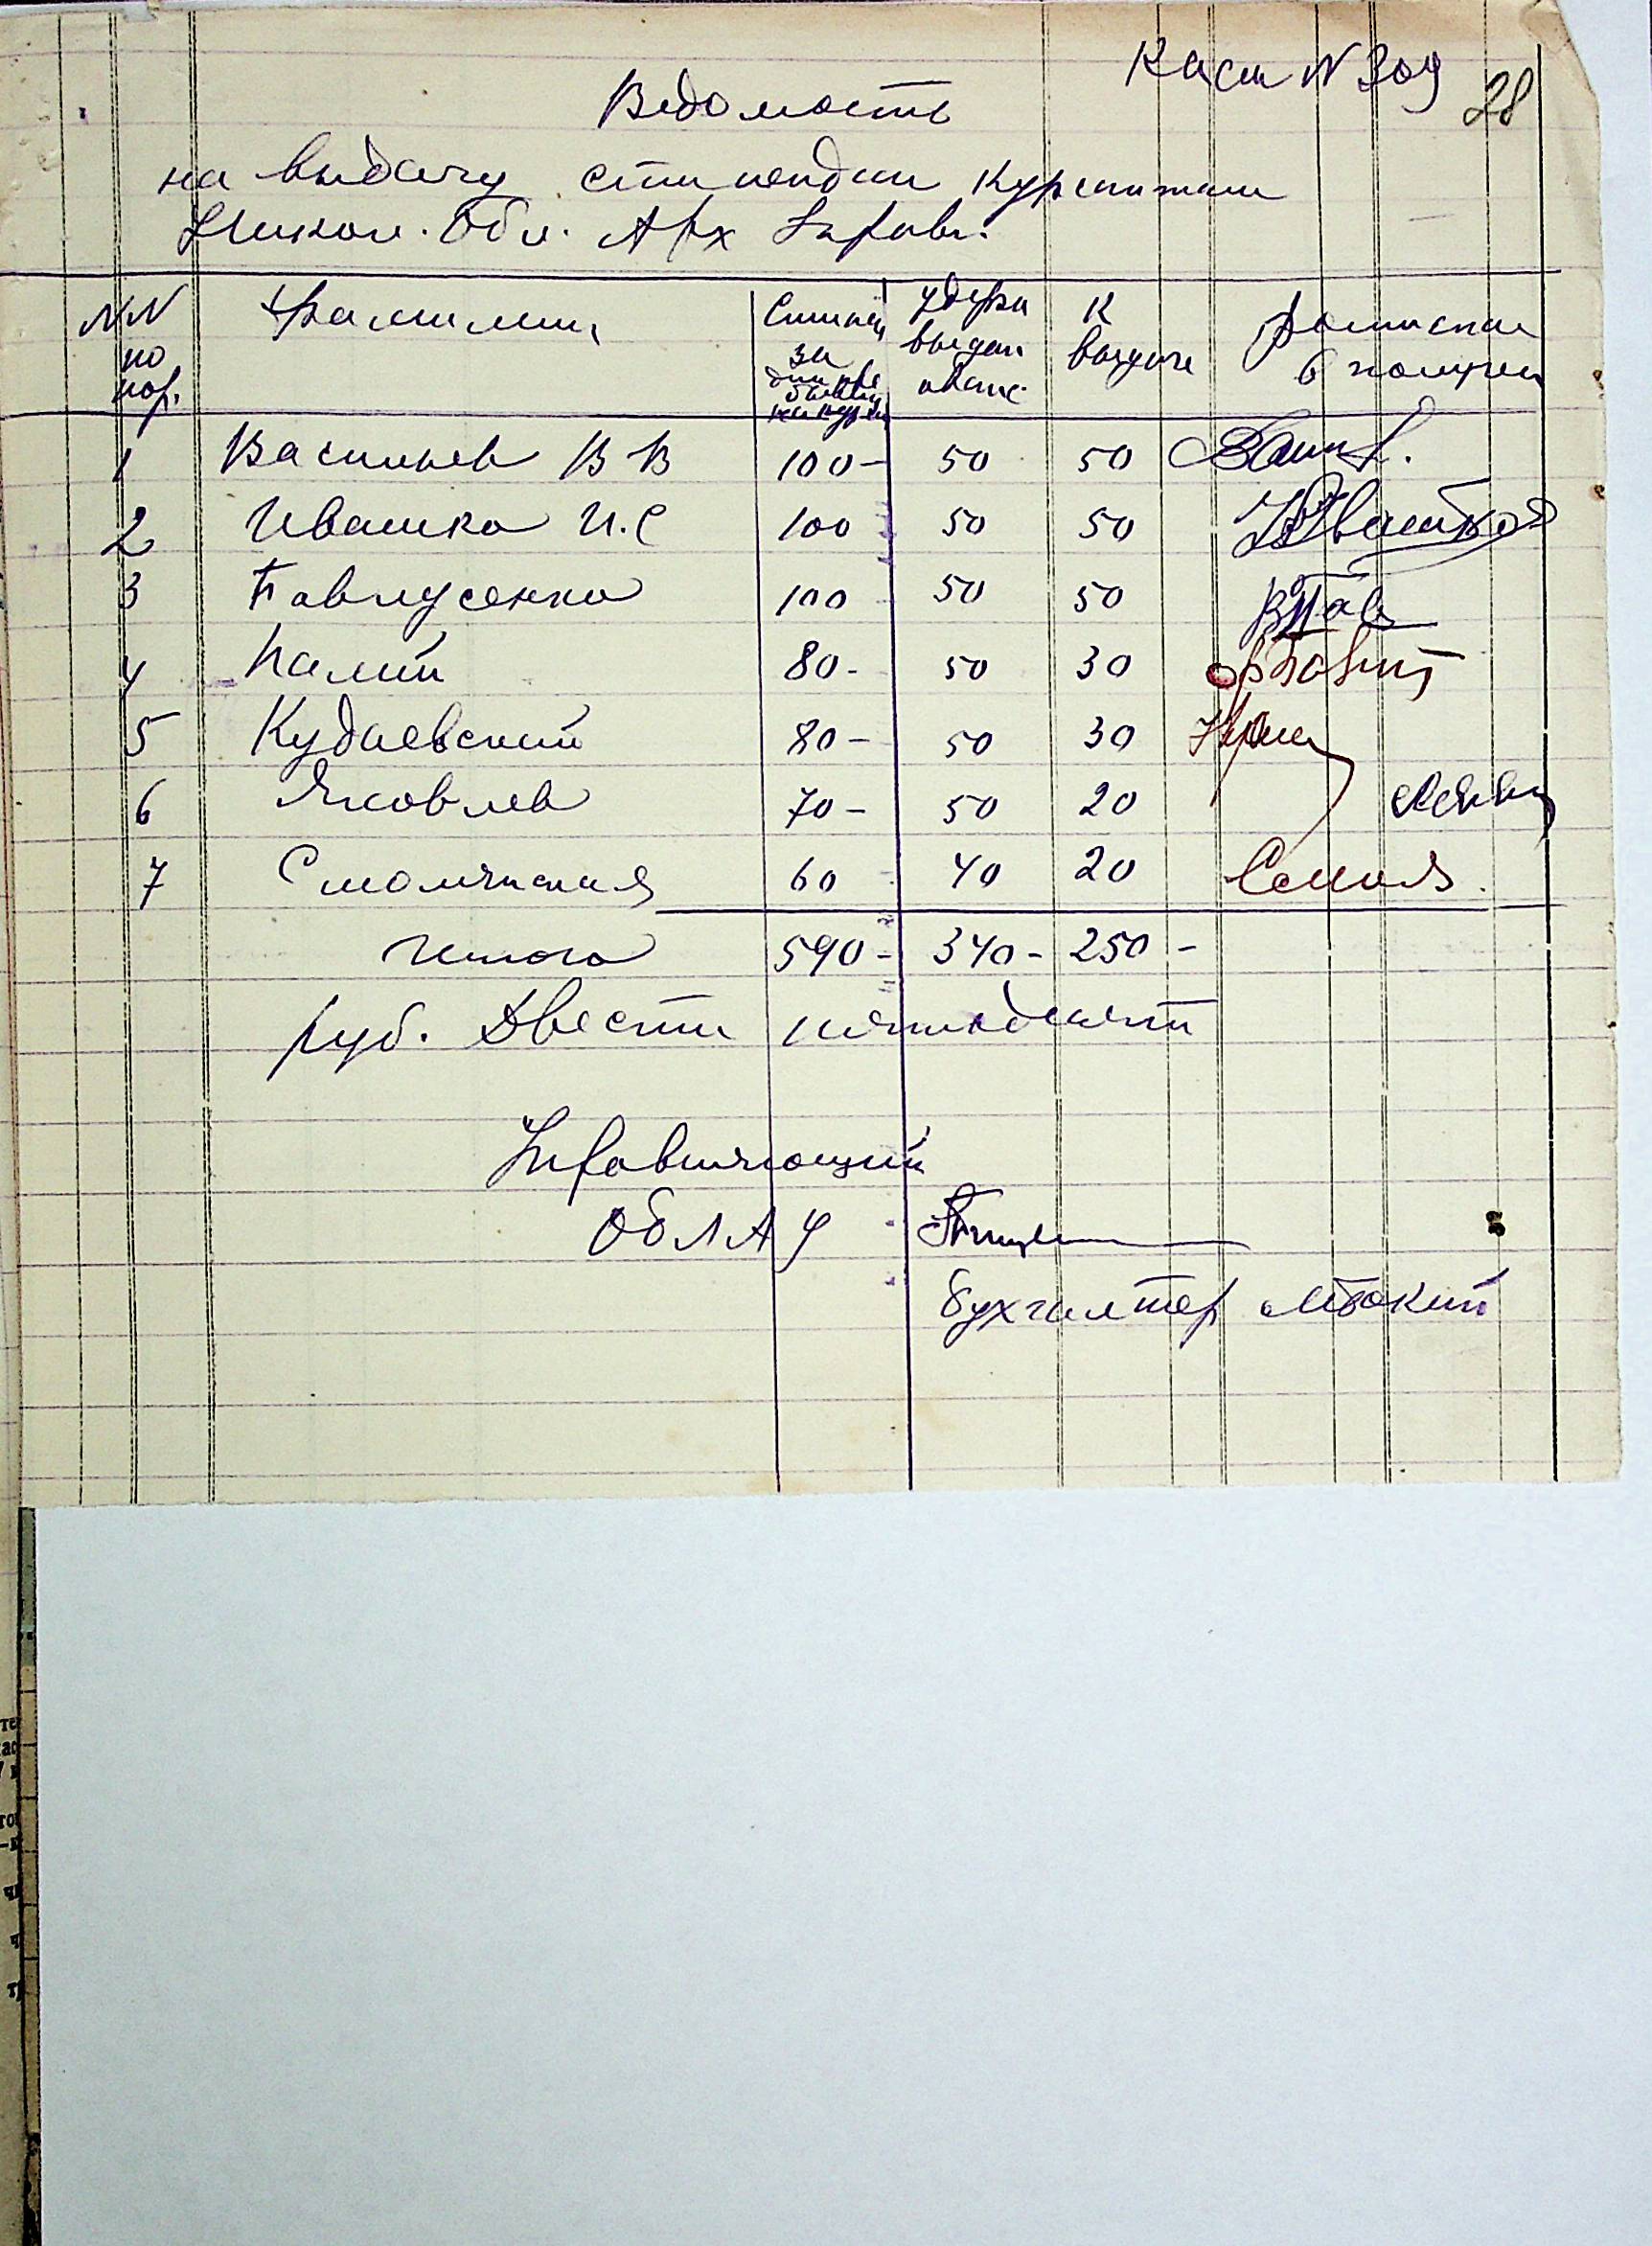 Касса N 309 28
Ведомость
на выдачу стипендии курсантам
Никол. Обл. Арх Управл.
NN по пор. Фамилии Стипен за дни на курсах Удержан выдан аванс К выдаче Расписка в получен
1 Васильев В В 100- 50 50
2 Ивашко И.С 100 50 50 Ивашко
3 Павлусенко 100 50 50 ВПав
4 Палий 80- 50 30
5 Кудаевский 80- 50 30
6 Яковлев 70- 50 20
7 Смолянская 60 40 20 Смоля
Итого 590- 340- 250-
руб. Двести пятьдесят
Управляющий
ОблАУ
бухгалтер